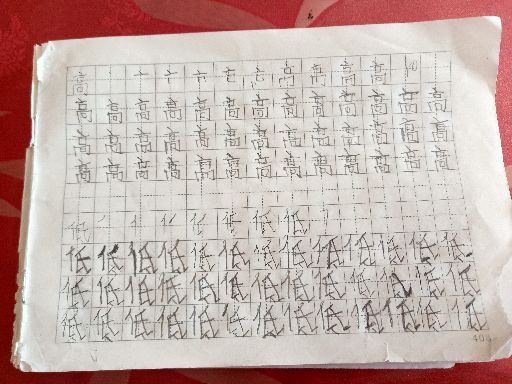 高 亠 亠 高 高 高
高 高 高 高 高 高 高 高 高 高 高 高 高
高 高 高 高 高 高 高 高 高 高 高 高 高
高 高 高 高 高 高 高 高 高 高 高 高 高
低 亻 亻 低 低
低 低 低 低 低 低 低 低 低 低 低 低 低
低 低 低 低 低 低 低 低 低 低 低 低 低
低 低 低 低 低 低 低 低 低 低 低 低 低